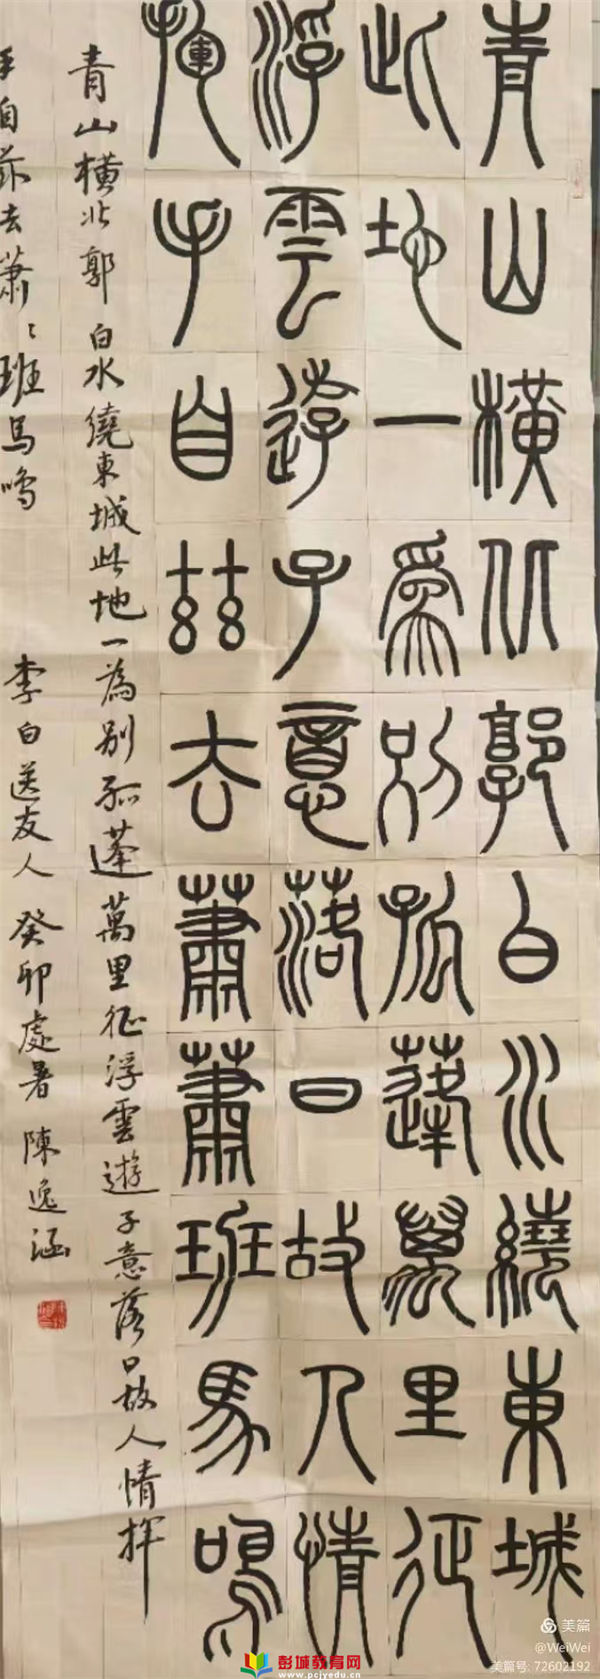 青山橫北郭白水繞東城
此地一為別孤蓬萬里征
浮雲遊子意落日故人情
揮手自茲去蕭蕭班馬鳴
青山橫北郭白水繞東城此地一為別孤蓬萬里征浮雲遊子意落日故人情揮
手自茲去蕭〻班馬鳴 李白送友人 癸卯處暑 陳逸涵
美篇
@WeiWei
美篇号: 72602192
彭城教育网
www.pcjyedu.com